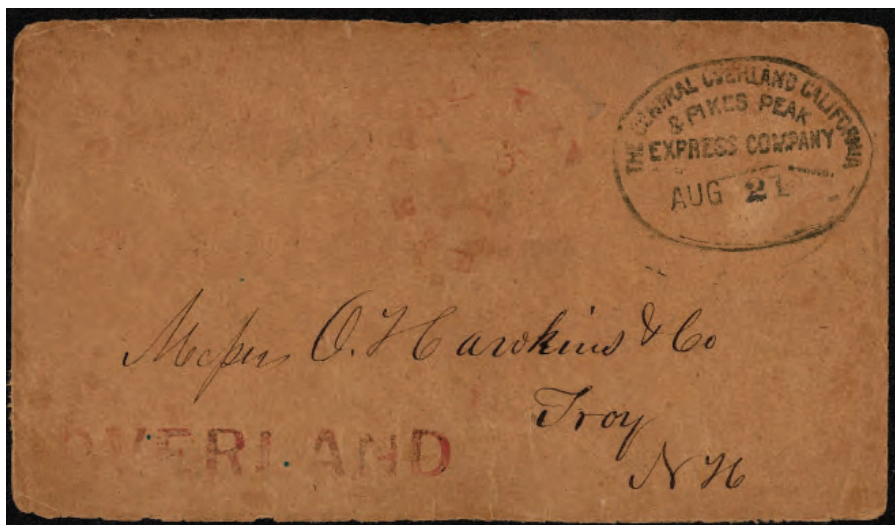 THE CENTRAL OVERLAND CALIFORNIA
& PIKES PEAK
EXPRESS COMPANY
AUG 21
Messrs O. Hawkins & Co
Troy
N H
OVERLAND